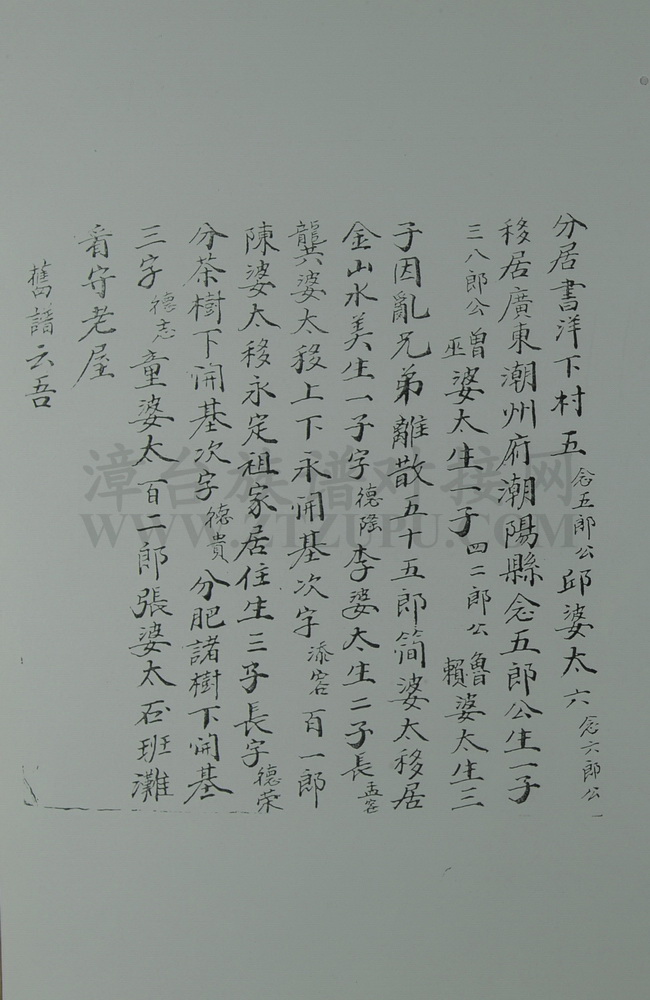 分居書洋下村五念五郎公邱婆太六念六郎公
移居廣東潮州府潮陽縣念五郎公生一子
三八郎公曾巫婆太生一子四二郎公魯賴婆太生三
子因亂兄弟離散五十五郎简婆太移居
金山水美生一子字德隆李婆太生二子長孟容
龔婆太移上下永開基次字添容百一郎
陳婆太移永定祖家居住生三子長字德荣
分茶樹下開基次字德貴分肥諸樹下開基
三字德志童婆太百二郎張婆太石班灘
看守老屋
舊譜云吾
漳台族谱对接网
WWW.ZTZUPU.COM